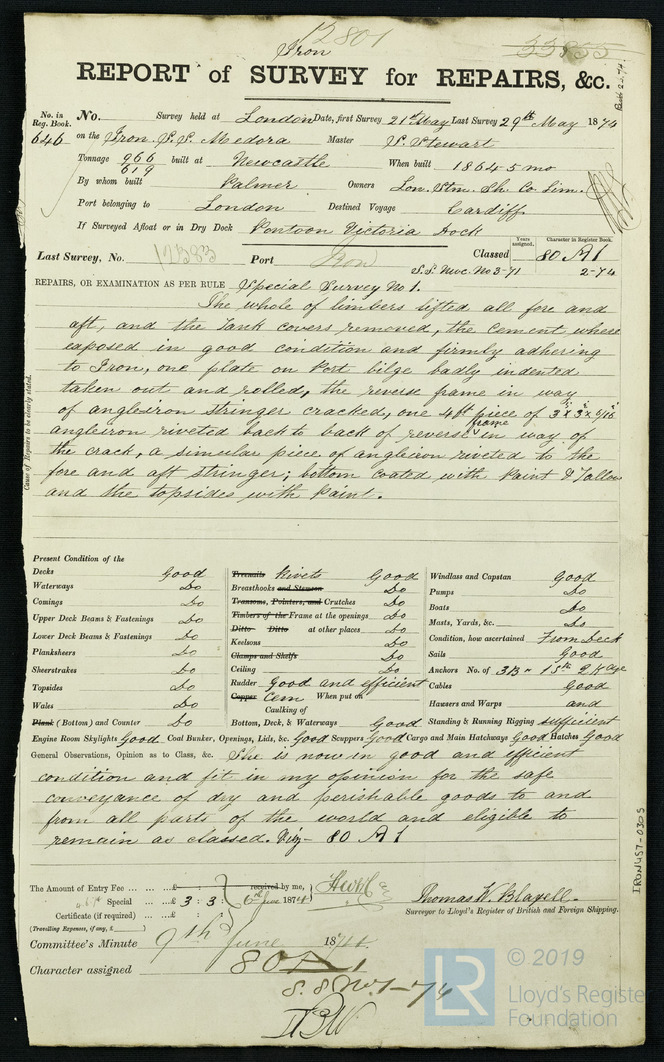 12801
33855
Iron
REPORT of SURVEY for REPAIRS, &c.
No. in Reg. Book. No. Survey held at London Date, first Survey 21st May Last Survey 29th May 1874
646 on the Iron S.S. Medora Master S. Stewart
Tonnage 966/619 built at Newcastle When built 1864 5 mo
By whom built Palmer Owners Lon. Stm. Sh. Co Lim.
Port belonging to London Destined Voyage Cardiff
If Surveyed Afloat or in Dry Dock Pontoon Victoria Dock
Last Survey, No. 12383 Port Lon Classed Years assigned. Character in Register Book. 80 A 1
S.S. Nwc. No 3-71 2-74
REPAIRS, OR EXAMINATION AS PER RULE Special Survey No 1.
The whole of limbers lifted all fore and
aft, and the Tank covers removed, the cement where
exposed in good condition and firmly adhering
to Iron, one plate on Port bilge badly indented
taken out and rolled, the reverse frame in way
of angleiron stringer cracked, one 4 ft piece of 3 x 3 x 6/16
angleiron riveted back to back of reverse frame in way of
the crack, a simular piece of angleiron riveted to the
fore and aft stringer; bottom coated with Paint & Tallow
and the topsides with Paint.
Cause of Repairs to be clearly stated.
Present Condition of the
Decks Good
Waterways Do
Comings Do
Upper Deck Beams & Fastenings Do
Lower Deck Beams & Fastenings Do
Planksheers Do
Sheerstrakes Do
Topsides Do
Wales Do
Plank (Bottom) and Counter Do
Treenails Rivets Good
Breasthooks and Stemson Do
Transoms, Pointers, and Crutches Do
Timbers of the Frame at the openings Do
Ditto Ditto at other places Do
Keelsons Do
Clamps and Shelfs Do
Ceiling Do
Rudder Good and efficient
Copper Cem When put on
Caulking of
Bottom, Deck, & Waterways Good
Windlass and Capstan Good
Pumps Do
Boats Do
Masts, Yards, &c. Do
Condition, how ascertained From Deck
Sails Good
Anchors No. of 3B 1 St 2 Kedge
Cables Good
Hawsers and Warps and
Standing & Running Rigging sufficient
Engine Room Skylights Good Coal Bunker, Openings, Lids, &c. Good Scuppers Good Cargo and Main Hatchways Good Hatches Good
General Observations, Opinion as to Class, &c. She is now in good and efficient
condition and fit in my opinion for the safe
conveyance of dry and perishable goods to and
from all parts of the world and eligible to
remain as classed. Viz- 80 A 1
The Amount of Entry Fee £ : : received by me,
Special £ 3 : 3 : 6th June 1874
Certificate (if required)
(Travelling Expenses, if any, £ )
Thomas W. Blaxell.
Surveyor to Lloyd's Register of British and Foreign Shipping.
Committee's Minute 9th June 1874.
Character assigned 80 A 1
S. S No. 1-74
IRON457-0305
LR
© 2019
Lloyd's Register
Foundation